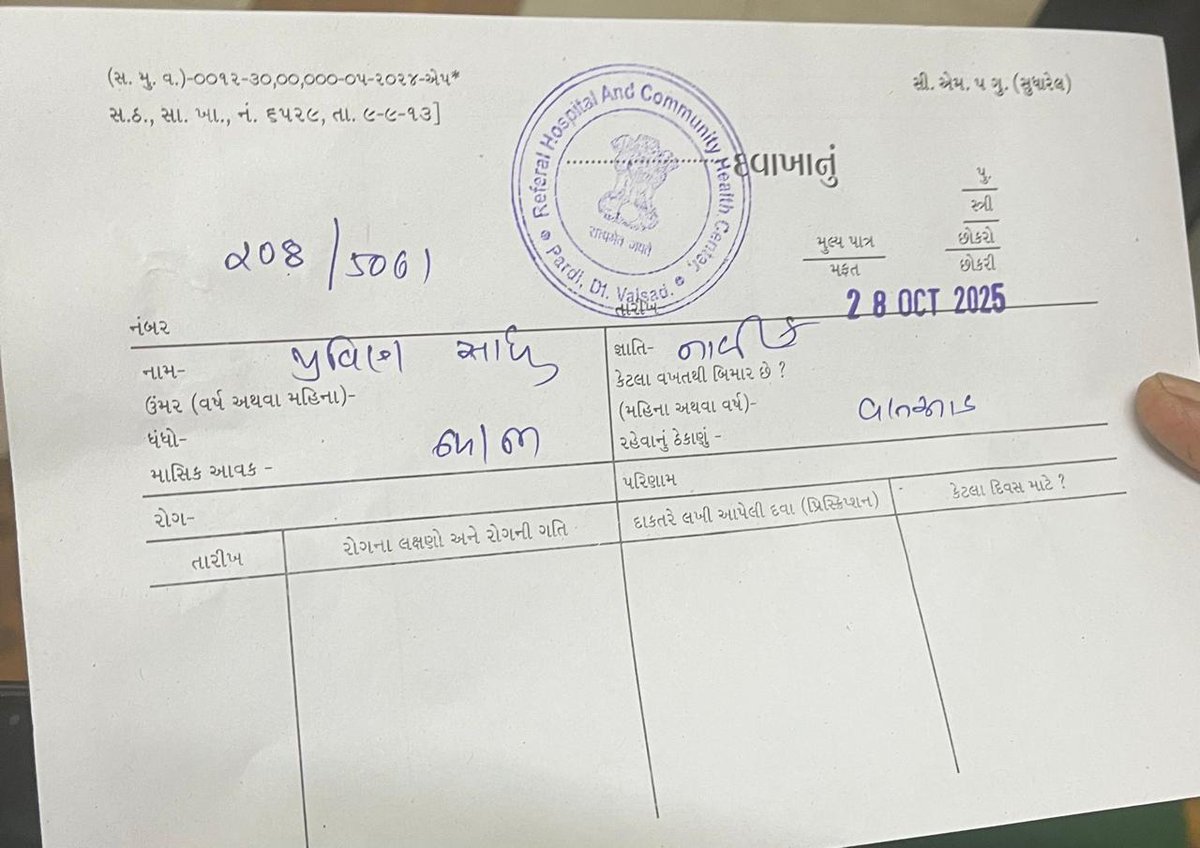 (સ. મુ. વ.)-૦૦૧૨-૩૦,૦૦,૦૦૦-૦૫-૨૦૨૪-એપ*
સી. એમ. ૫ ગુ. (સુધારેલ)
સ.ઠ., સા. ખા., નં. ૬૫૨૯, તા. ૯-૯-૧૩]
Referal Hospital And Community Health Center,
Pardi, Dt. Valsad.
सत्यमेव जयते
દવાખાનું
પુ.
સ્ત્રી
છોકરો
છોકરી
મુલ્ય પાત્ર
મફત
તારીખ
28 OCT 2025
નંબર
નામ- પ્રવિણ સાધુ
જ્ઞાતિ-
ઉંમર (વર્ષ અથવા મહિના)-
કેટલા વખતથી બિમાર છે ?
ધંધો-
(મહિના અથવા વર્ષ)-
માસિક આવક -
રહેવાનું ઠેકાણું -
રોગ-
પરિણામ
તારીખ
રોગના લક્ષણો અને રોગની ગતિ
દાકતરે લખી આપેલી દવા (પ્રિસ્ક્રિપ્શન)
કેટલા દિવસ માટે ?